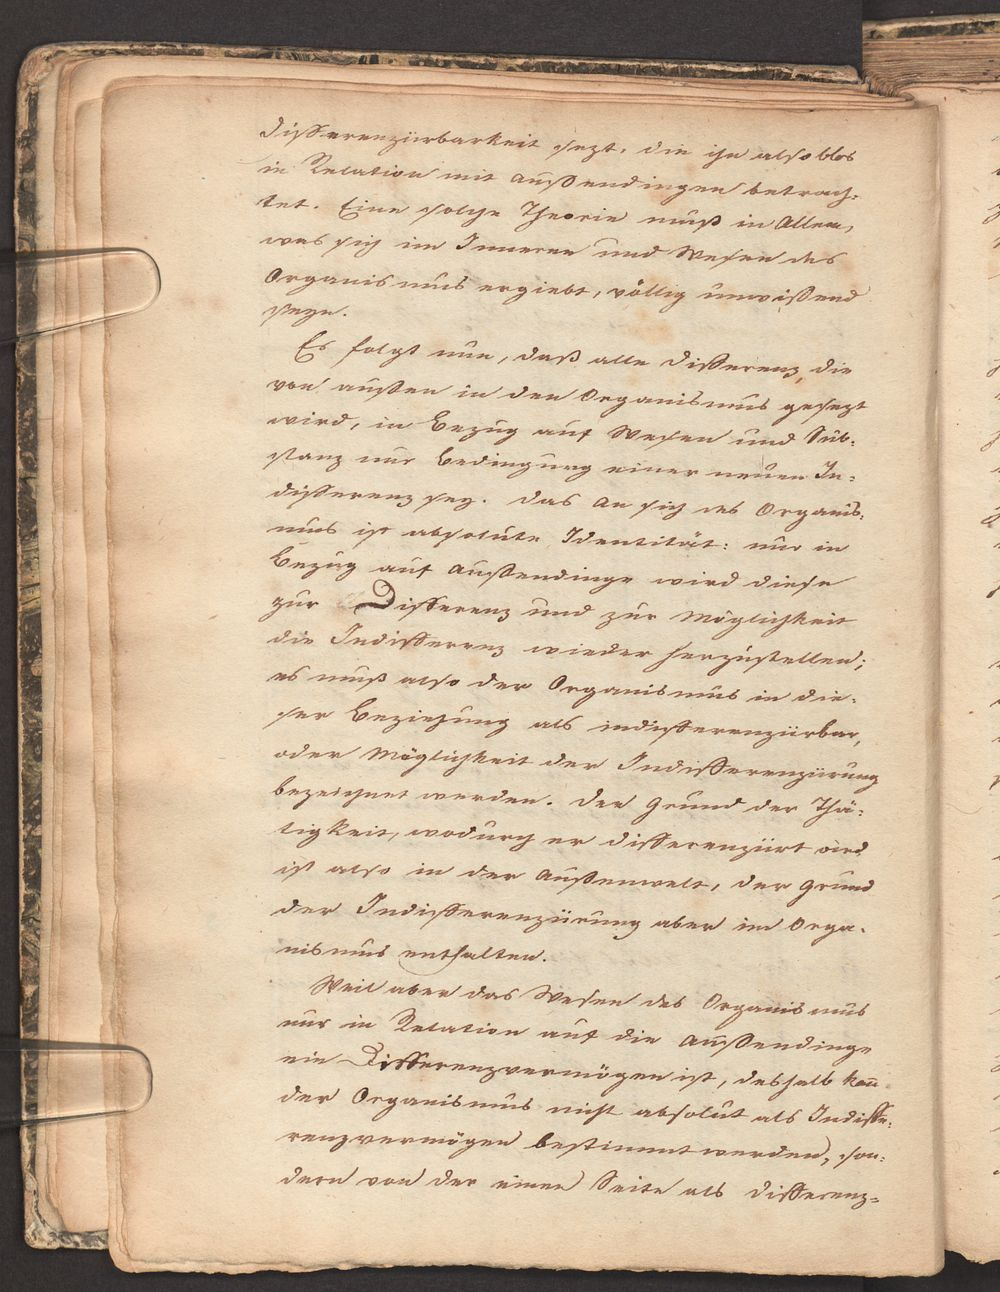 differenzürbarkeit sezt, die ihn also blos
in Relation mit Außendingen betrach-
tet. Eine solche Theorie muß in Allem,
was sich im Inneren und Wesen des
Organismus ergiebt, völlig unwißend
seyn.
Es folgt nun, daß alle Differenz, die
von außen in den Organismus gesezt
wird, in Bezug auf Wesen und Sub-
stanz nur Bedingung einer neuen In-
differenz sey. Das An sich des Organis-
mus ist absolute Identität: nur in
Bezug auf Außendinge wird diese
zur Differenz und zur Möglichkeit
die Indifferenz wieder herzustellen;
es muß also der Organismus in die-
ser Beziehung als indifferenzürbar,
oder Möglichkeit der Indifferenzürung
bezeichnet werden. Der Grund der Thä-
tigkeit, wodurch er differenzürt wird
ist also in der Außenwelt, der Grund
der Indifferenzürung aber im Orga-
nismus enthalten.
Weil aber das Wesen des Organismus
nur in Relation auf die Außendinge
ein Differenzvermögen ist, deshalb kan̅
der Organismus nicht absolut als Indiffe-
renzvermögen bestimmt werden, son-
dern von der einen Seite als Differenz-